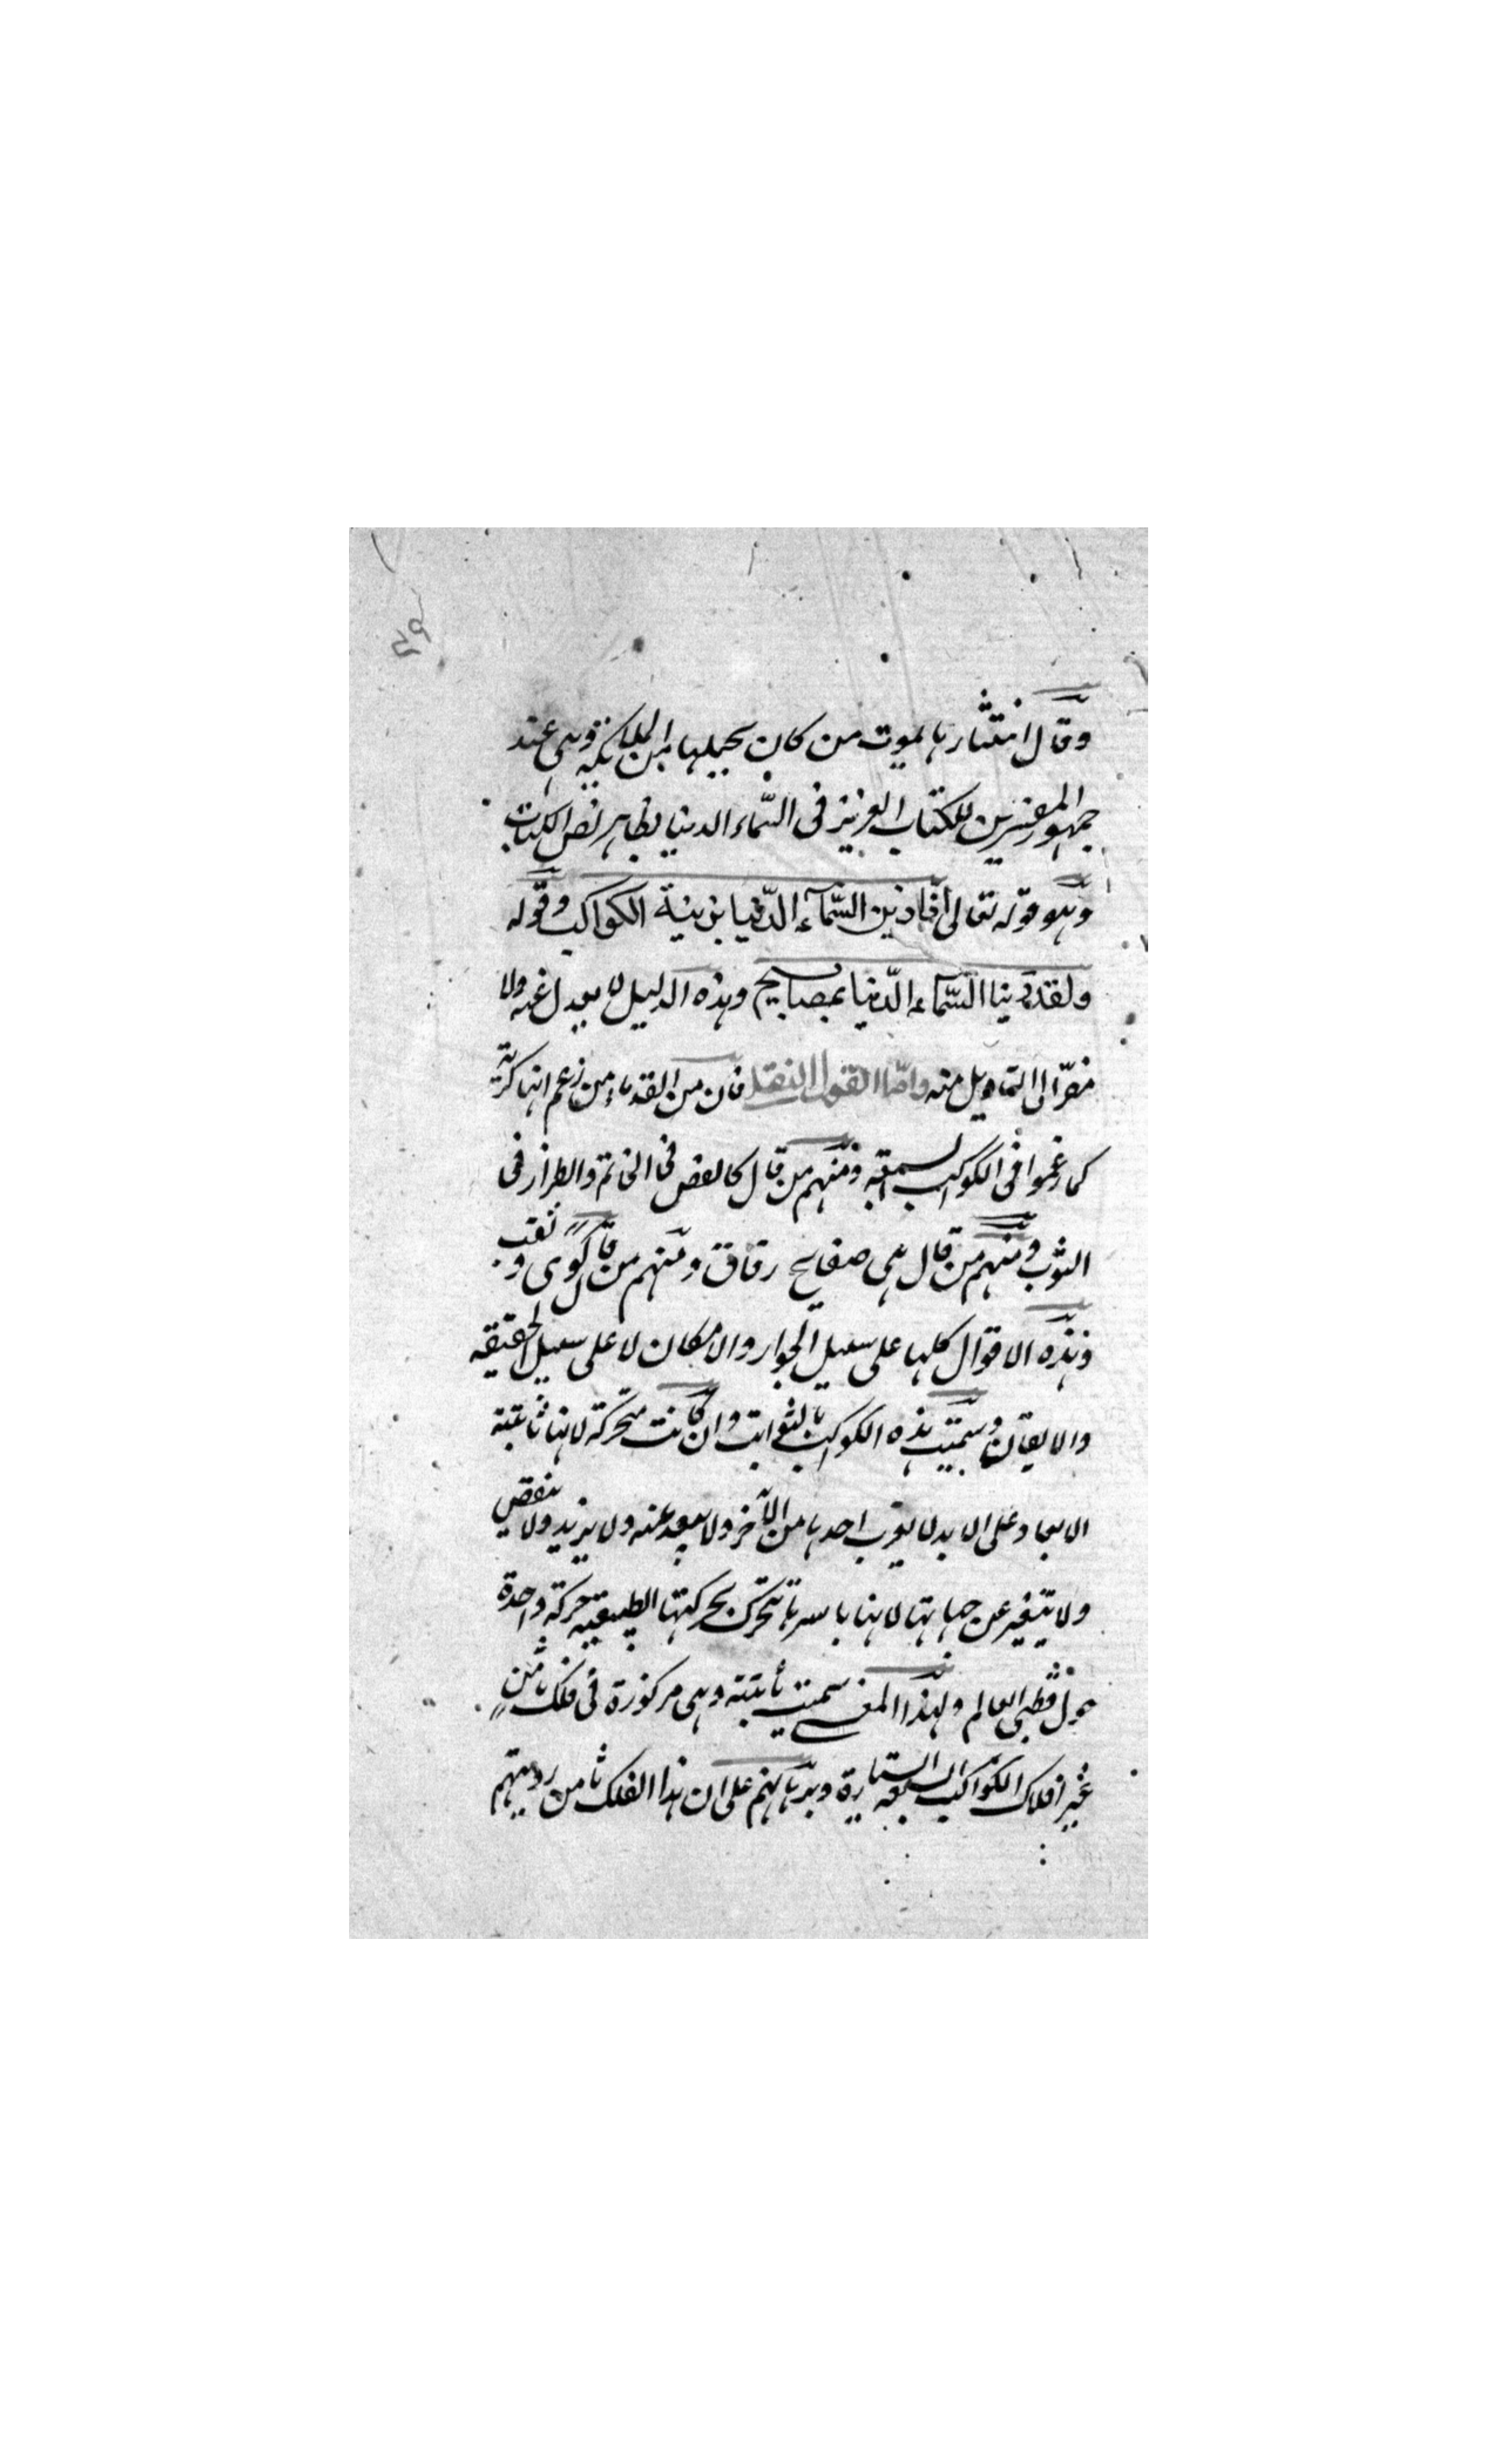 ٥٩
وقال انتثارها بموت من كان يحملها من الملائكة وهى عند
جمهور المفسرين للكتاب العزيز فى السّماء الدنيا بظاهر نص الكتاب
وهو قوله تعالى انّا زينا السّمآء الدّنيا بزينة الكواكب وقوله
ولقد زينا السّمآء الدّنيا بمصابيح وهذه الدليل لا يعدل عنه ولا
مفرّ الى التاويل منه وامّا القول النقل فان من القدماء من زعم انها كرية
كما زعموا فى الكواكب السبعة ومنهم من قال كالفص فى الخاتم والطراز فى
الثوب ومنهم من قال هى صفايح رقاق ومنهم من قال كوى وثقب
وهذه الاقوال كلها على سبيل الجواز والامكان لا على سبيل الحقيقه
والايقان وسميت هذه الكواكب بالثوابت وان كانت متحركة لانها ثابتة
الابعاد على الابد لا يقرب احدها من الآخر ولا يبعد عنه ولا يزيد ولا ينقص
ولا يتغير عن جهاتها لانها باسرها تتحرك بحركتها الطبيعية حركة واحدة
حول قطبى العالم ولهذا المعنى سميت ثابتة وهى مركوزة فى فلك ثامن
غير افلاك الكواكب السبعة السيارة وبرهانهم على ان هذا الفلك ثامن رويتهم